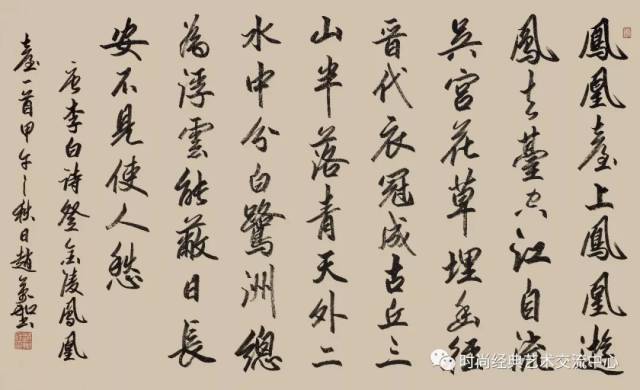 鳳凰臺上鳳凰遊
鳳去臺空江自流
吳宮花草埋幽徑
晉代衣冠成古丘三
山半落青天外二
水中分白鷺洲總
為浮雲能蔽日長
安不見使人愁
唐李白詩登金陵鳳凰
臺一首甲午之秋日趙
时尚经典艺术交流中心